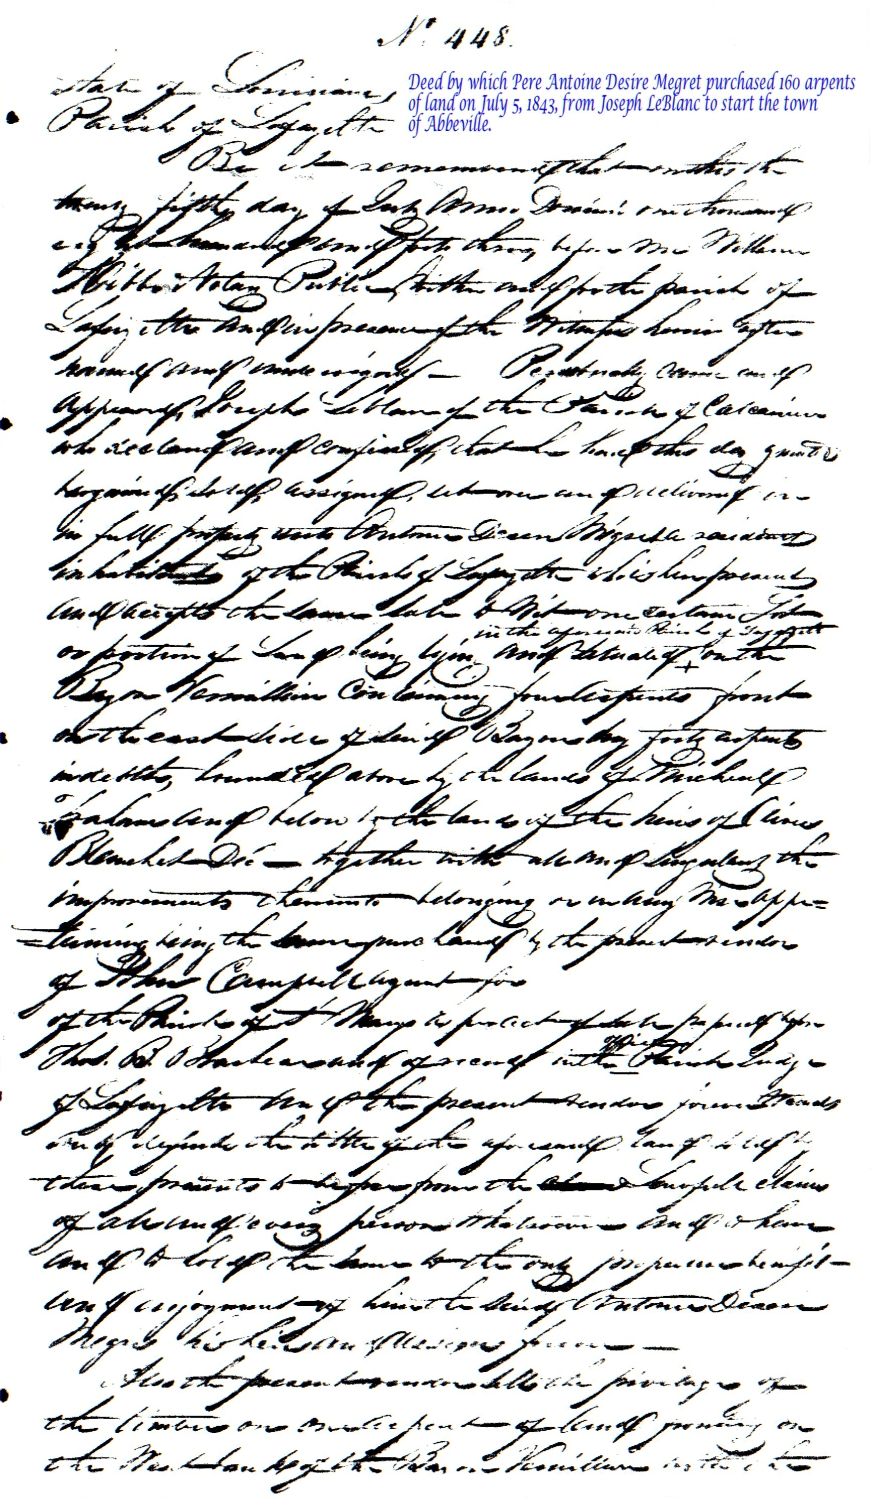 No. 448.
Deed by which Pere Antoine Desire Megret purchased 160 arpents
of land on July 5, 1843, from Joseph LeBlanc to start the town
of Abbeville.
State of Louisiana,
Parish of Lafayette
Be it remembered that on this the
twenty fifth day of July Anno Domini one thousand
eight hundred and forty three, before me William
Notary Public, within and for the parish of
Lafayette and in presence of the Witnesses herein after
named and undersigned — Personally came and
appeared, Joseph Leblanc of the Parish of Calcasieu
who declared and confessed, that he hath this day
bargained, sold, assigned, set over and delivered
in full property unto Antoine a resident
inhabitant of the Parish of Lafayette who is here present
and accepts the same sale to Wit one certain Lot
in the aforesaid Parish of Lafayette
or portion of Land being lying and situated + on the
Bayou Vermillion Containing four arpents front
on the east side of said Bayou by forty arpents
in depth, bounded above by the lands of
and below by the lands of the heirs of
Blanchet Dec — together with all and singular the
improvements thereunto belonging or in any wise appe=
=taining being the same purchased by the present vendor
of John Campbell agent for
of the Parish of St Marys as per act of sale passed before
Thos. B. Brashear and of record in the Parish Judge
office
of Lafayette and the present vendor
and defends the title of the aforesaid land sold by
these presents to from the Lawful claims
of all and every person Whatsoever and to have
and to hold the same to the only proper use benefit
and enjoyment of him the said Antoine
his heirs and assigns forever —
Also the present vendor sells the privilege of
the timber on one arpent of land on
the West bank of the Bayou Vermillion with the